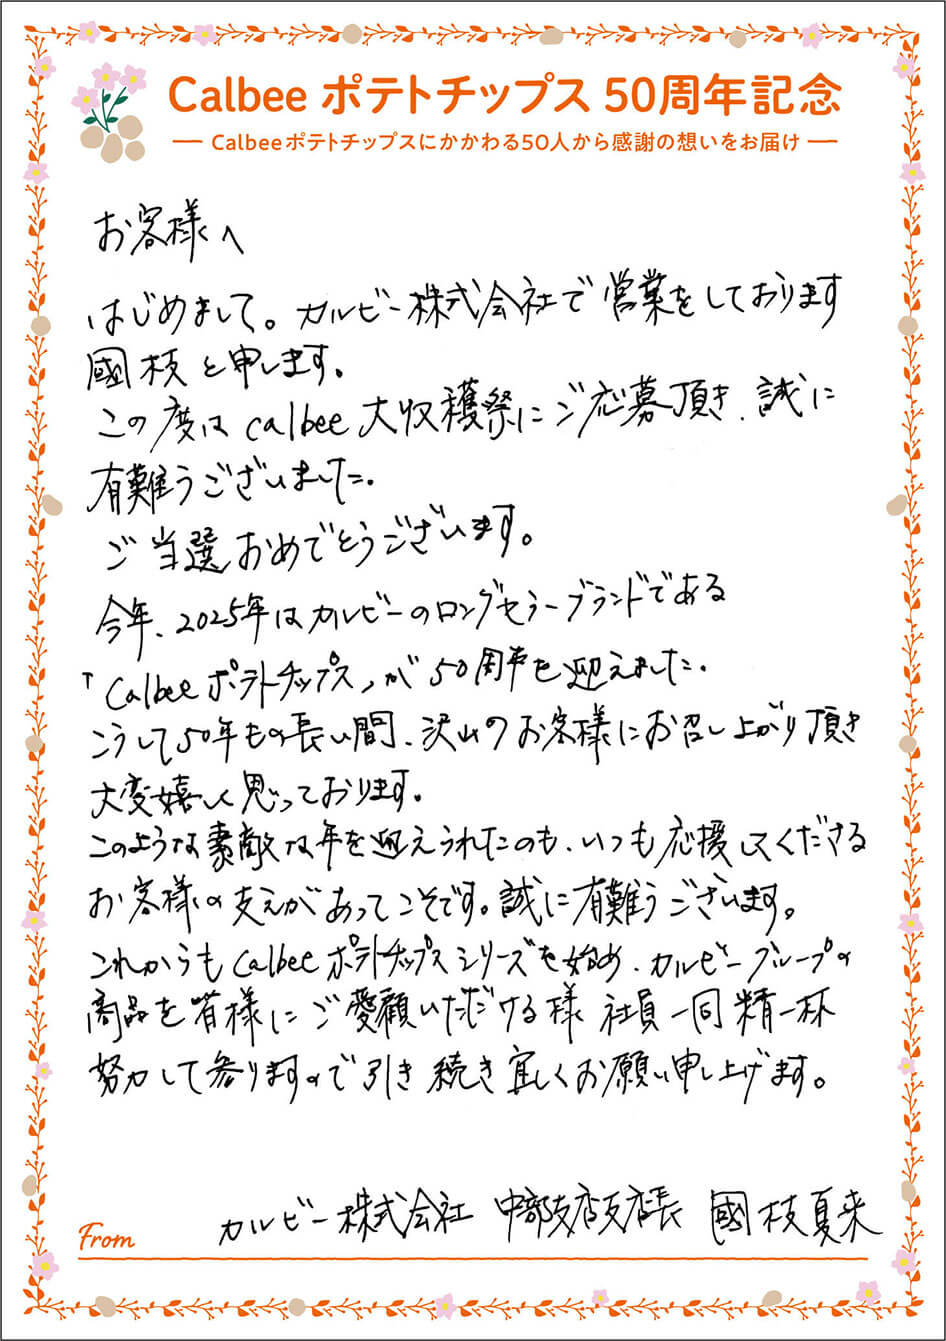 Calbee ポテトチップス 50周年記念
Calbeeポテトチップスにかかわる50人から感謝の想いをお届け
お客様へ
はじめまして。カルビー株式会社で営業をしております
國枝と申します。
この度はCalbee大収穫祭にご応募頂き、誠に
有難うございました。
ご当選おめでとうございます。
今年、2025年はカルビーのロングセラーブランドである
「Calbeeポテトチップス」が50周年を迎えました。
こうして50年もの長い間、沢山のお客様にお召し上がり頂き
大変嬉しく思っております。
このような素敵な年を迎えられたのも、いつも応援してくださる
お客様の支えがあってこそです。誠に有難うございます。
これからもCalbeeポテトチップスシリーズを始め、カルビーグループの
商品を皆様にご愛顧いただける様 社員一同精一杯
努力して参りますので引き続き宜しくお願い申し上げます。
カルビー株式会社 中部支店支店長 國枝夏来
From